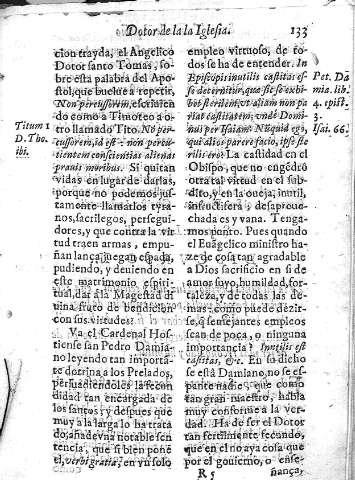 Dotor de la la Iglesia. 133
cion trayda, el Angelico
Dotor santo Tomas, so-
bre esta palabra del Apo-
stol, que buelue a repetir,
Non percussorem, escriuien
do como a Timoteo a o-
tro llamado Tito. No per-
cussorem, id est, non percu-
tientem conscientias alienas
prauis moribus. Si quitan
vidas en lugar de darlas,
porque no podemos jus-
tamente llamarlos tyra-
nos, sacrilegos, perseguí-
dores, y que contra la vir
tud traen armas, empu-
ñan lança, juegan espada,
pudiendo, y deuiendo en
este matrimonio espiri-
tual, dar à la Magestad di
uina, fruto de bendicion
con sus virtudes?
Ya el Cardenal Hos-
tiense san Pedro Damia-
no leyendo tan importa-
te dotrina a los Prelados,
persuadiendoles la fecon
didad tan encargada de
los santos; y despues que
muy a la larga lo ha trata
do; añade vna notable sen
tencia, que si bien pone
el, verbi gratia; en vn solo
Titum 1
D. Tho.
ibi.
empleo virtuoso, de to-
dos se ha de entender. In
Episcopi inutilis castitas es-
se decernitur, quæ sic se exhi-
bet sterilem, vt aliam non pa
riat castitatem; vnde Domi-
nus per Isaiam: Nūquid ego,
qui alios parere facio, ipse ste
rilis ero? La castidad en el
Obispo, que no engēdrò
otra tal virtud en el sub-
dito, y en la oueja, inutil,
infructifera, desaproue-
chada es y vana. Tenga-
mos punto. Pues quando
el Euāgelico ministro ha-
ze de cosa tan agradable
a Dios sacrificio en si de
amor suyo, humildad, for
taleza, y de todas las de-
mas: como puede dezir-
se, q̃ semejantes empleos
sean de poca, o ninguna
importancia? Inutilis est
castitas, &c. En su dicho
se està Damiano, no se es-
pante nadie, que como
tan gran maestro, habla
muy conforme a la ver-
dad. Ha de ser el Dotor
tan fertilmente fecundo,
que en el no aya cosa que
por el gouierno, o ense-
Pet. Da
mia. lib.
4. epist.
3.
Isai. 66.
R 5 ñança,